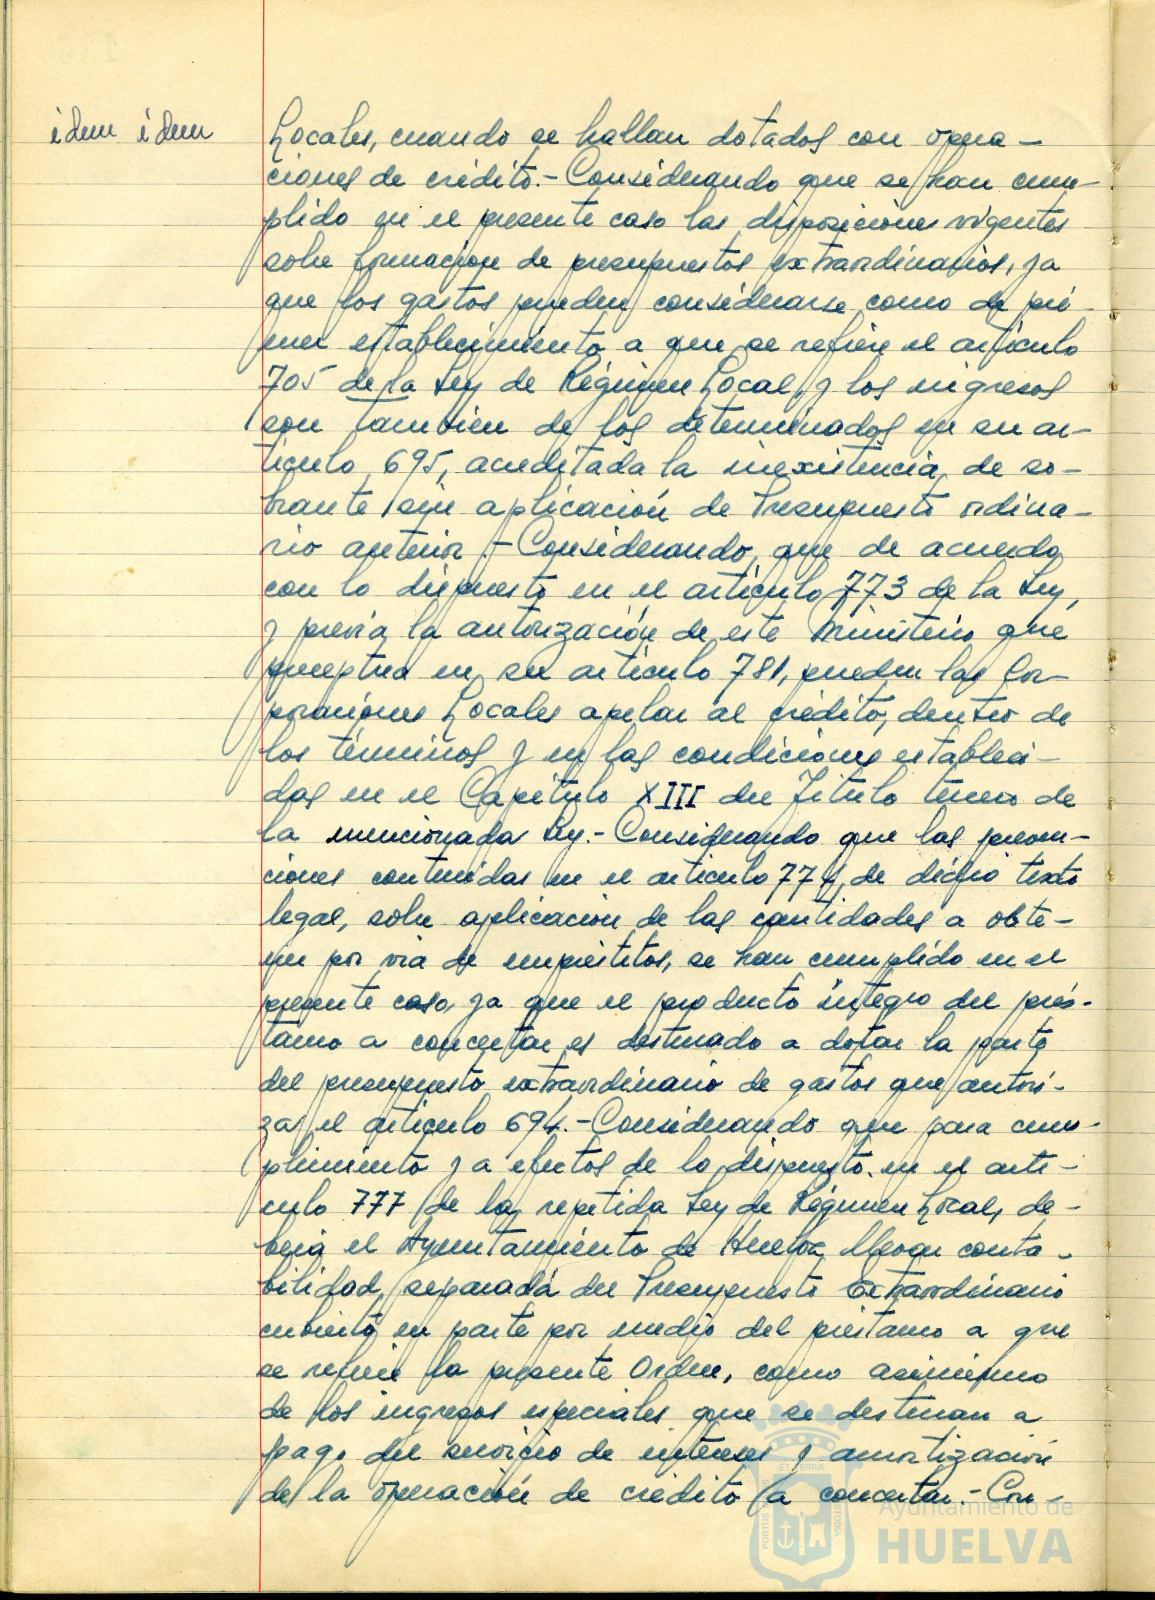 idem idem
Locales, cuando se hallan dotados con opera-
ciones de crédito.- Considerando que se han cum-
plido en el presente caso las disposiciones vigentes
sobre formación de presupuestos extraordinarios, ya
que los gastos pueden considerarse como de pri-
mer establecimiento a que se refiere el artículo
705 de la Ley de Régimen Local, y los ingresos
son también de los determinados en su ar-
tículo 695, acreditada la inexistencia de so-
brante sin aplicación de Presupuesto ordina-
rio anterior.- Considerando, que de acuerdo
con lo dispuesto en el artículo 773 de la Ley,
y previa la autorización de este Ministerio que
preceptua en su artículo 781, pueden las Cor-
poraciones Locales apelar al crédito, dentro de
los términos y en las condiciones estableci-
das en el Capítulo XIII del Título tercero de
la mencionada Ley.- Considerando que las preven-
ciones contenidas en el artículo 774, de dicho texto
legal, sobre aplicación de las cantidades a obte-
ner por vía de empréstitos, se han cumplido en el
presente caso, ya que el producto íntegro del prés-
tamo a concertar es destinado a dotar la parte
del presupuesto extraordinario de gastos que autori-
za el artículo 694.- Considerando que para cum-
plimiento y a efectos de lo dispuesto en el artí-
culo 777 de la repetida Ley de Régimen Local, de-
berá el Ayuntamiento de Huelva llevar conta-
bilidad separada del Presupuesto Extraordinario
cubierto en parte por medio del préstamo a que
se refiere la presente Orden, como asimismo
de los ingresos especiales que se destinan a
pago del servicio de intereses y amortización
de la operación de crédito a concertar.- Con-
Ayuntamiento de
HUELVA